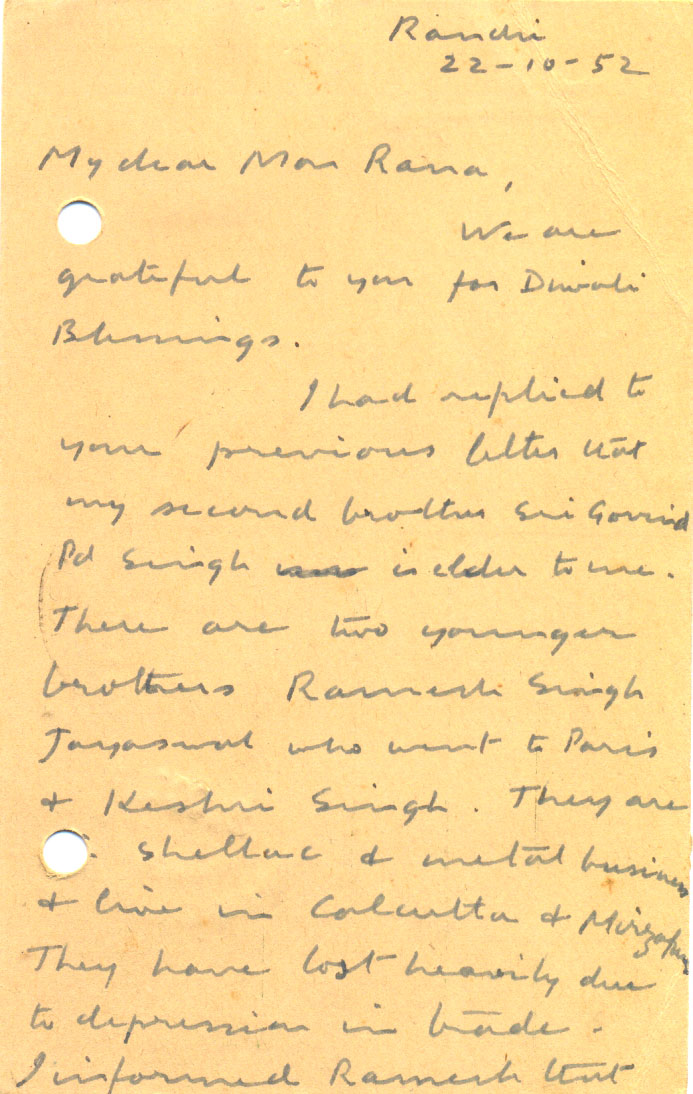 Ranchi
22-10-52
My dear Mon Rana,
We are
grateful to you for Diwali
Blessings.
I had replied to
your previous letter that
my second brother Sri Govind
Pd Singh is elder to me.
There are two younger
brothers Ramesh Singh
Jayaswal who went to Paris
& Keshri Singh. They are
shellac & metal business
& live in Calcutta & Mirzapur
They have lost heavily due
to depression in trade.
I informed Ramesh that